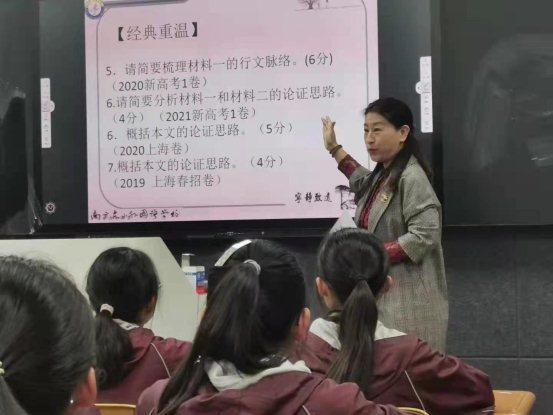 【经典重温】
5．请简要梳理材料一的行文脉络。(6分)
（2020新高考1卷）
6.请简要分析材料一和材料二的论证思路。
（4分）（2021新高考1卷）
6．概括本文的论证思路。（5分）
（2020上海卷）
7.概括本文的论证思路。（4分）
（2019 上海春招卷）
宁静致远